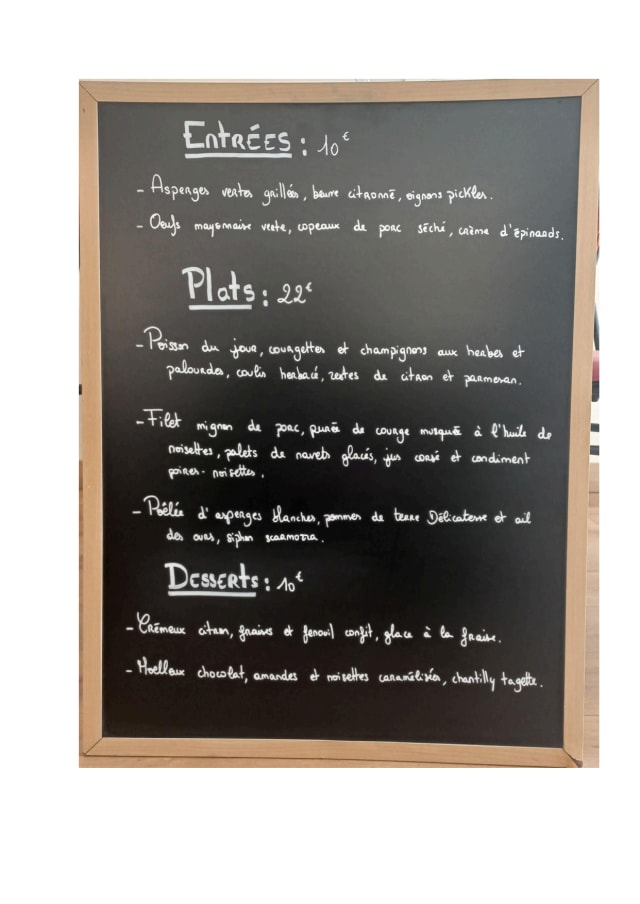 ENTRÉES : 10€
- Asperges vertes grillées, beurre citronné, oignons pickles.
- Oeufs mayonnaise verte, copeaux de porc séché, crème d'épinards.
Plats : 22€
- Poisson du jour, courgettes et champignons aux herbes et
palourdes, coulis herbacé, zestes de citron et parmesan.
- Filet mignon de porc, purée de courge musquée à l'huile de
noisettes, palets de navets glacés, jus corsé et condiment
poires-noisettes.
- Poêlée d'asperges blanches, pommes de terre Délicatesse et ail
des ours, siphon scarmoza.
DESSERTS : 10€
- Crémeux citron, fraises et fenouil confit, glace à la fraise.
- Moelleux chocolat, amandes et noisettes caramélisées, chantilly tagette.